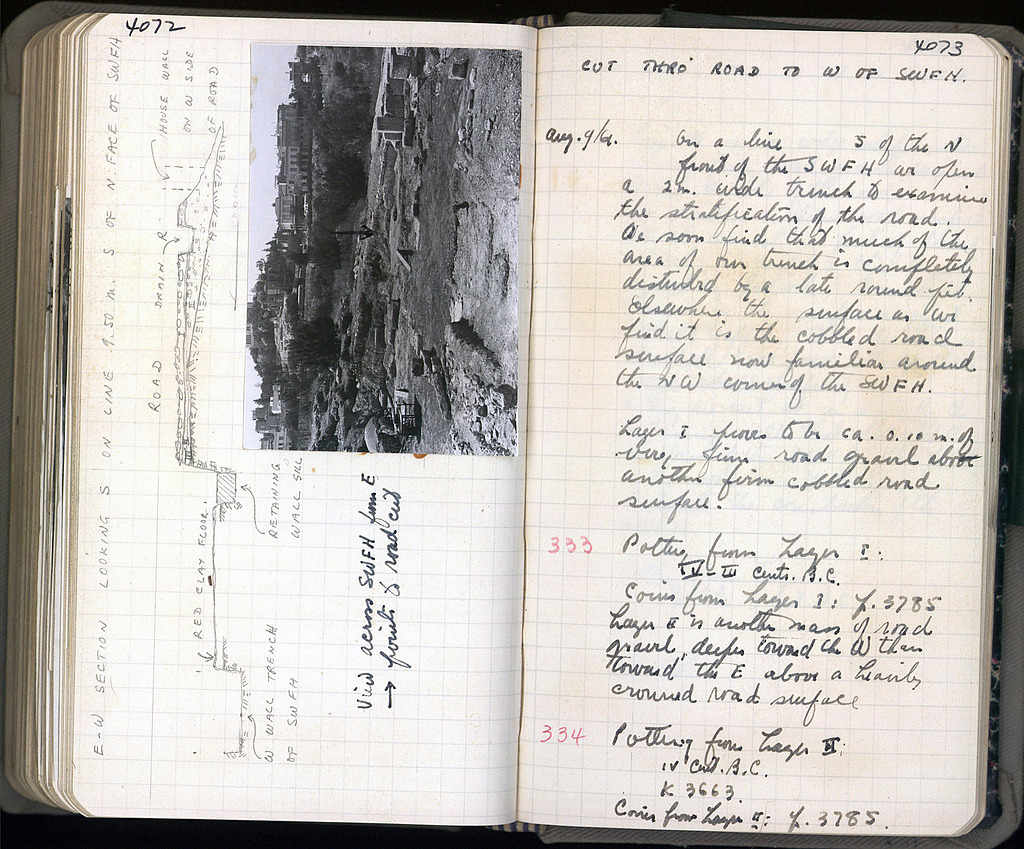 4072
E-W SECTION LOOKING S ON LINE 9.50 m. S OF N. FACE OF SWFH
HOUSE WALL
ON W SIDE
OF ROAD
ROAD
DRAIN R.
RED CLAY FLOOR.
RETAINING
WALL SILL
W WALL TRENCH
OF SWFH
View across SWFH from E
→ points to road cut
4073
CUT THRO' ROAD TO W OF SWFH.
Aug. 9/
On a line S of the N
front of the SWFH we open
a 2m. wide trench to examine
the stratification of the road.
We soon find that much of the
area of our trench is completely
disturbed by a late round pit.
Elsewhere the surface as we
find it is the cobbled road
surface now familiar around
the NW corner of the SWFH.
Layer I proves to be ca. 0.10 m. of
very firm road gravel above
another firm cobbled road
surface.
333 Pottery from Layer I:
IV-III cents. B.C.
Coins from Layer I: p. 3785
Layer II is another mass of road
gravel, deeper toward the W than
toward the E above a heavily
crowned road surface
334 Pottery from Layer II:
IV cent. B.C.
K 3663.
Coins from Layer II: p. 3785.